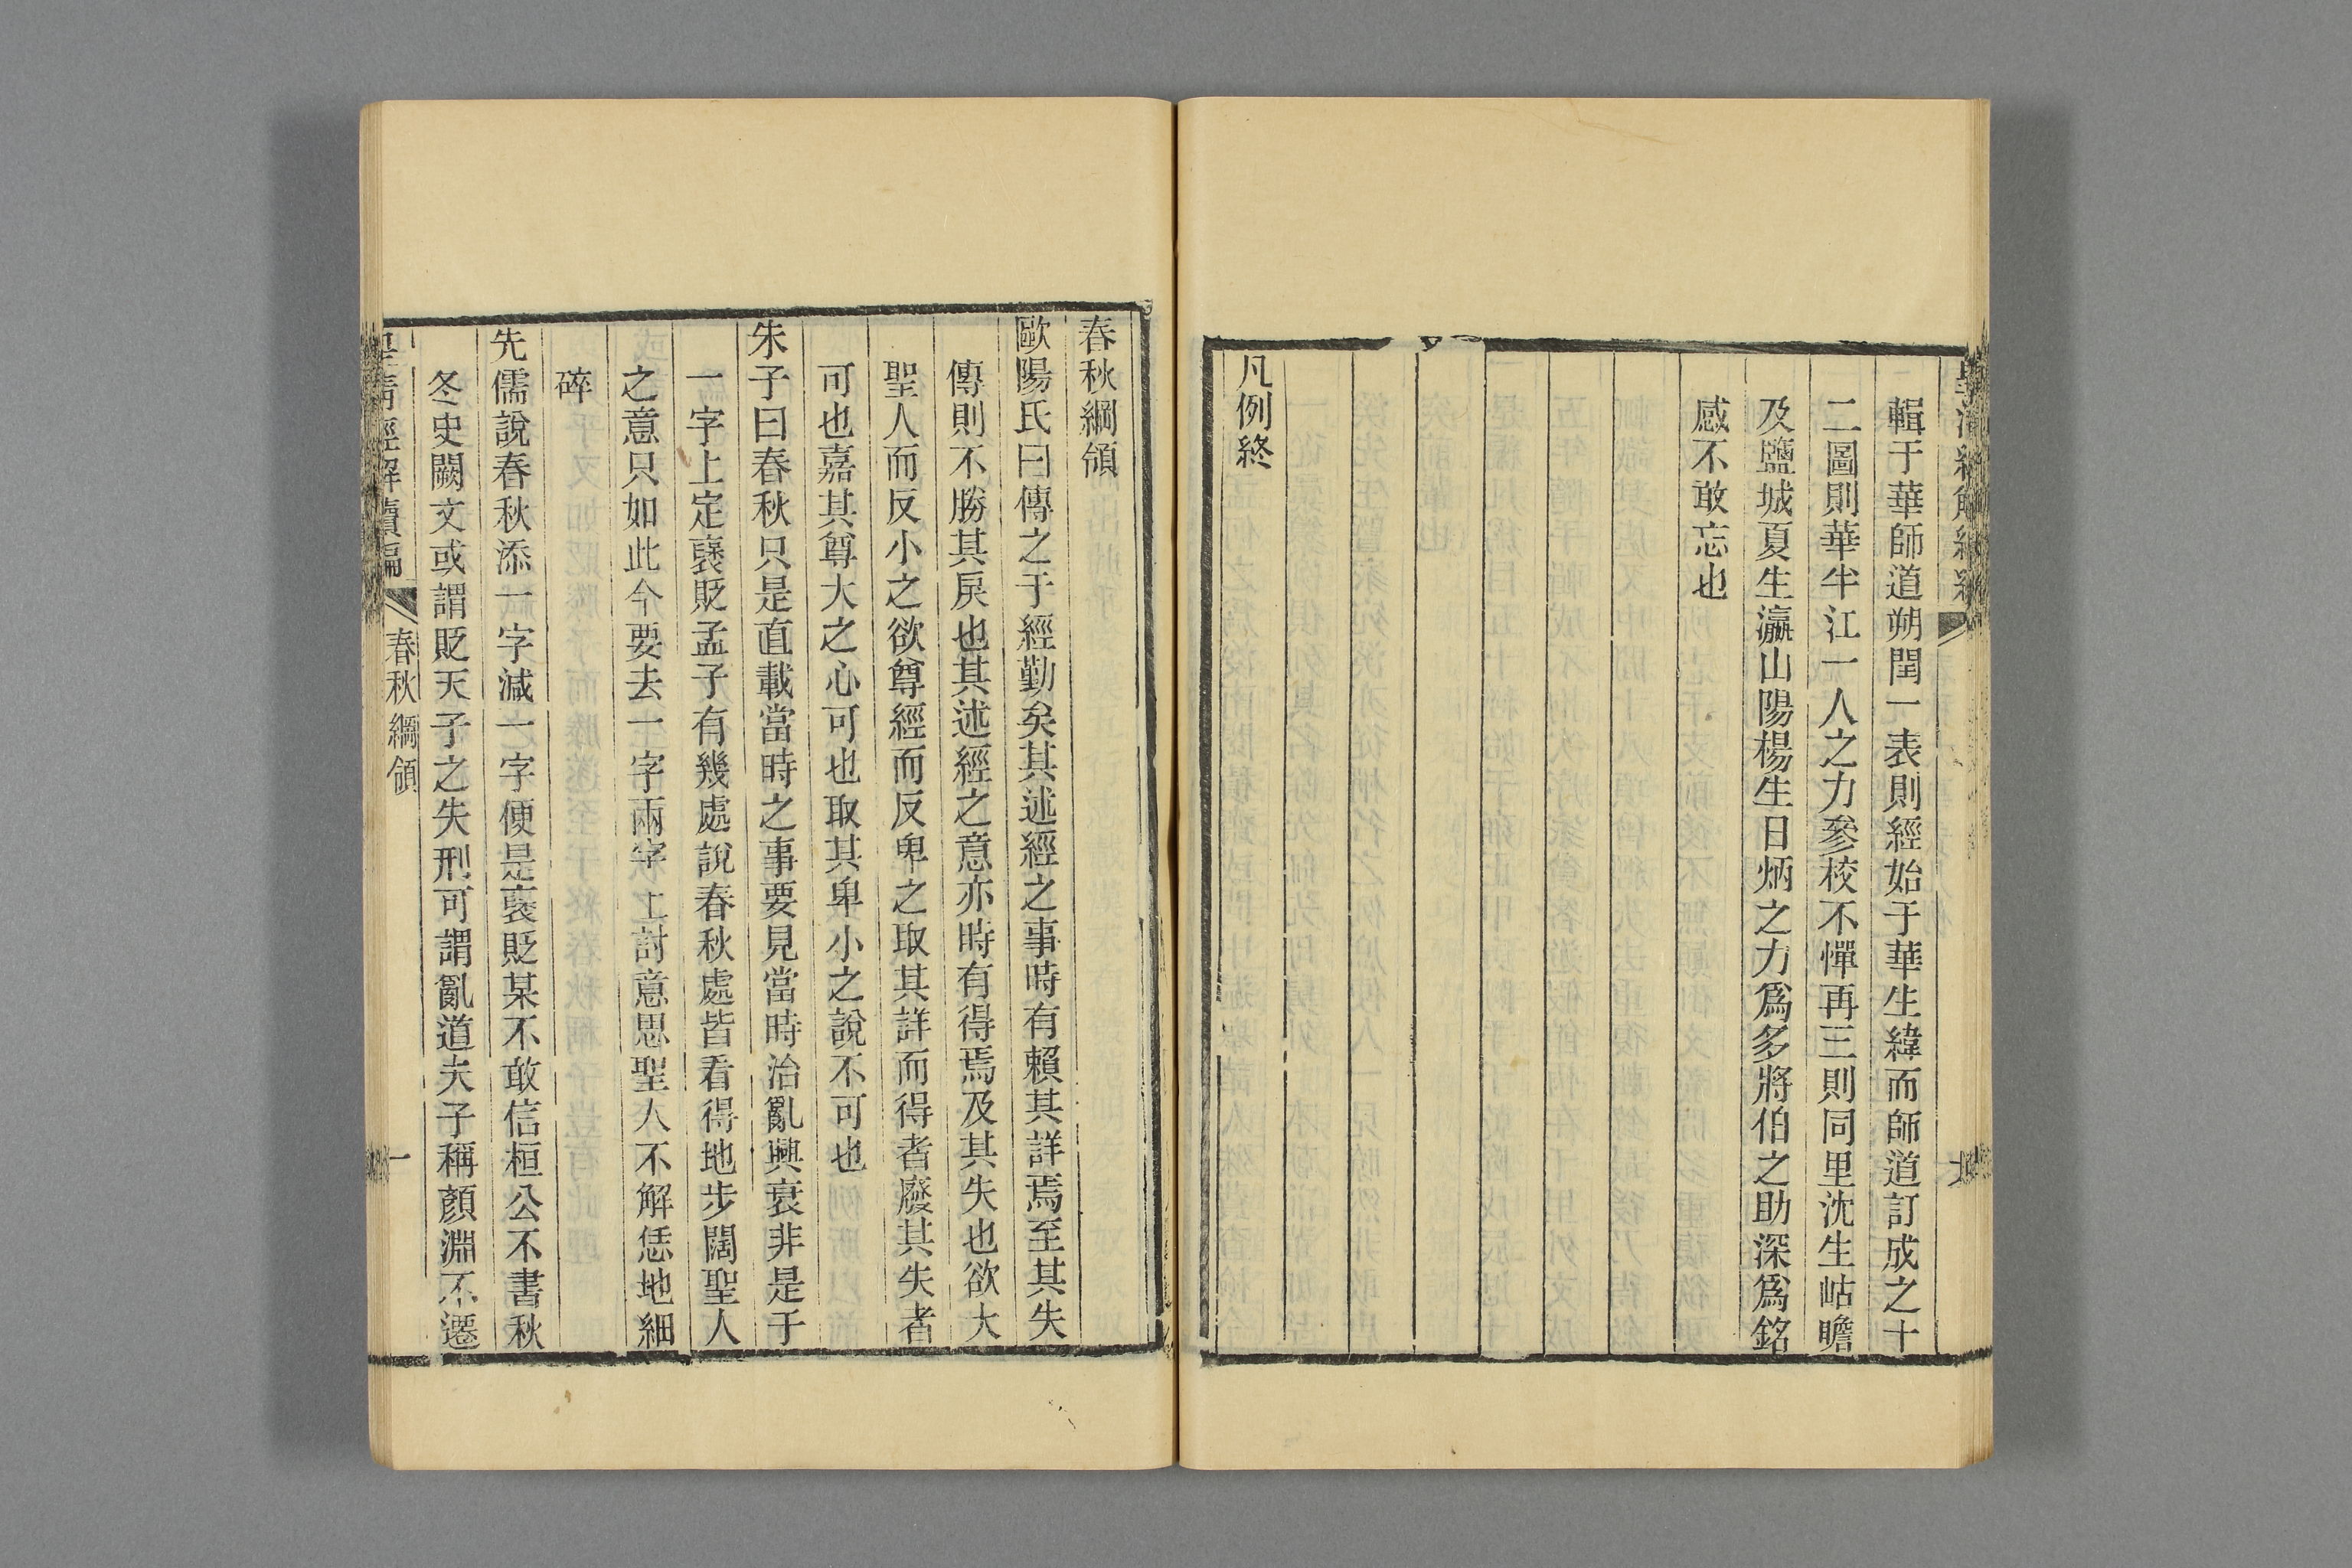 輯于華師道朔閏一表則經始于華生緯而師道訂成之十
二圖則華半江一人之力參校不憚再三則同里沈生岵瞻
及鹽城夏生瀛山陽楊生日炳之力爲多將伯之助深爲銘
感不敢忘也
凡例終
春秋綱領
歐陽氏曰傳之于經勤矣其述經之事時有賴其詳焉至其失
傳則不勝其戾也其述經之意亦時有得焉及其失也欲大
聖人而反小之欲尊經而反卑之取其詳而得者廢其失者
可也嘉其尊大之心可也取其卑小之說不可也
朱子曰春秋只是直載當時之事要見當時治亂興衰非是于
一字上定襃貶孟子有幾處說春秋處皆看得地步闊聖人
之意只如此今要去一字兩字上討意思聖人不解恁地細
碎
先儒說春秋添一字減一字便是襃貶某不敢信桓公不書秋
冬史闕文或謂貶天子之失刑可謂亂道夫子稱顏淵不遷
皇清經解續編
春秋綱領
一